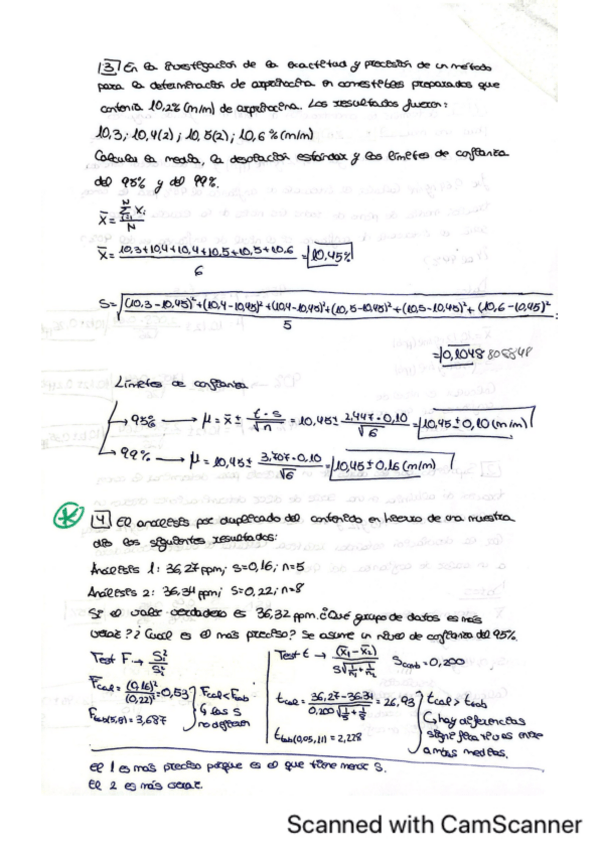 3 En la investigación de la exactitud y precisión de un método
para la determinación de en comestibles preparados que
contenía 10,2% (m/m) de Los resultados fueron:
10,3; 10,4(2); 10,5(2); 10,6 % (m/m)
Calcular la media, la desviación estándar y los límites de confianza
del 95% y del 99%.
X̄ = Σ Xi / N
X̄ = 10,3+10,4+10,4+10,5+10,5+10,6 / 6 = 10,45%
S = √ (10,3-10,45)²+(10,4-10,45)²+(10,4-10,45)²+(10,5-10,45)²+(10,5-10,45)²+(10,6-10,45)² / 5 =
= 0,1048808848
Límites de confianza
→ 95% → μ = x̄ ± t·s / √n = 10,45 ± 2,447·0,10 / √6 = 10,45 ± 0,10 (m/m)
→ 99% → μ = 10,45 ± 3,707·0,10 / √6 = 10,45 ± 0,15 (m/m)
4 El análisis por duplicado del contenido en hierro de una muestra
dio los siguientes resultados:
Análisis 1: 36,27 ppm; s=0,16; n=5
Análisis 2: 36,34 ppm; S=0,22; n=8
Si el valor verdadero es 36,32 ppm. ¿Qué grupo de datos es más
veraz? ¿Cual es el más preciso? Se asume un nivel de confianza del 95%.
Test F → S₁² / S₂²
Fcal = (0,16)² / (0,22)² = 0,53
Ftab = 3,687
Fcal < Ftab
↳ las S
no difieren
Test t → (x̄₁ - x̄₂) / S √ 1/n₁ + 1/n₂
Scomb = 0,200
tcal = 36,27-36,34 / 0,200 √ 1/5 + 1/8 = 26,93
ttab (0,05, 11) = 2,228
tcal > ttab
↳ hay diferencias
significativas entre
ambas medias.
El 1 es más preciso porque es el que tiene menor S.
El 2 es más veraz.
Scanned with CamScanner